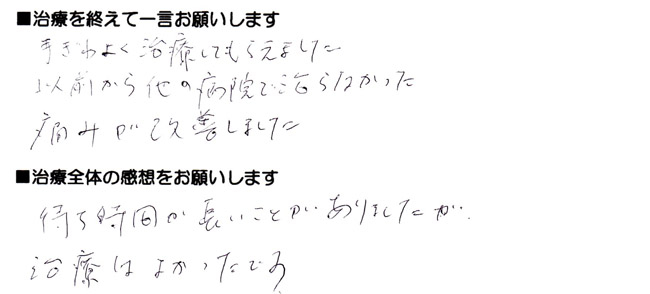 ■治療を終えて一言お願いします
手ぎわよく治療してもらえました
以前から他の病院で治らなかった
痛みが改善しました
■治療全体の感想をお願いします
待ち時間が長いことがありましたが、
治療はよかったです